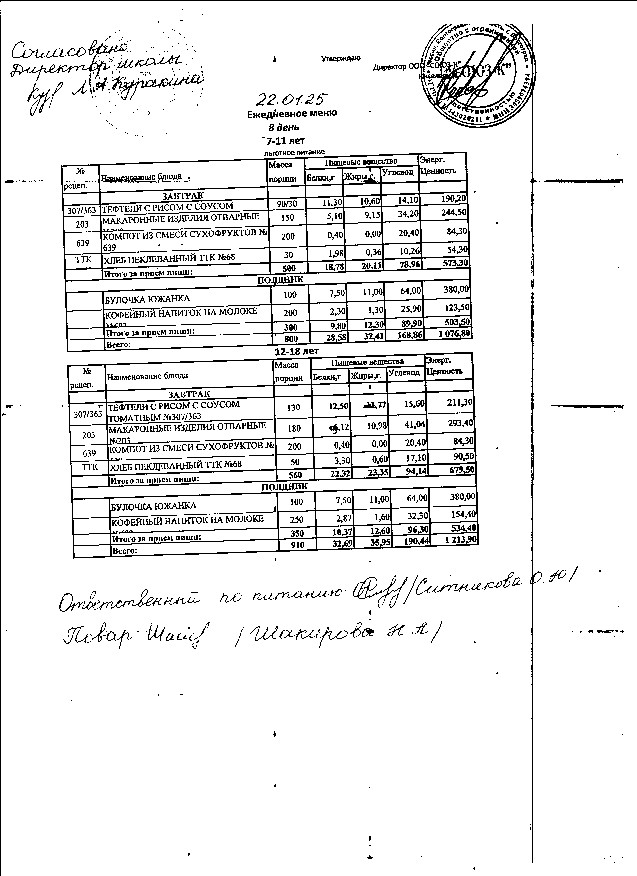 Согласовано
Директор школы
Л.А. Куракина
Утверждаю
Директор ООО "СОЮЗ-К"
22.01.25
Ежедневное меню
8 день
7-11 лет
льготное питание
№ рецеп. Наименование блюда Масса порции Пищевые вещества Энерг. Ценность
Белки,г Жиры,г Углевод
ЗАВТРАК
307/363 ТЕФТЕЛИ С РИСОМ С СОУСОМ 90/30 11,30 10,60 14,10 190,20
203 МАКАРОННЫЕ ИЗДЕЛИЯ ОТВАРНЫЕ 150 5,10 9,15 34,20 244,50
639 КОМПОТ ИЗ СМЕСИ СУХОФРУКТОВ № 639 200 0,40 0,00 20,40 84,30
ТТК ХЛЕБ ПЕКЛЕВАННЫЙ ТТК №68 30 1,98 0,36 10,26 54,30
Итого за прием пищи: 500 18,78 20,11 78,96 573,30
ПОЛДНИК
БУЛОЧКА ЮЖАНКА 100 7,50 11,00 64,00 380,00
КОФЕЙНЫЙ НАПИТОК НА МОЛОКЕ 200 2,30 1,30 25,90 123,50
Итого за прием пищи: 300 9,80 12,30 89,90 503,50
Всего: 800 28,58 32,41 168,86 1 076,80
12-18 лет
№ рецеп. Наименование блюда Масса порции Пищевые вещества Энерг. Ценность
Белки,г Жиры,г Углевод
ЗАВТРАК
307/363 ТЕФТЕЛИ С РИСОМ С СОУСОМ ТОМАТНЫМ №307/363 130 12,50 15,60 211,30
203 МАКАРОННЫЕ ИЗДЕЛИЯ ОТВАРНЫЕ №203 180 6,12 10,98 41,04 293,40
639 КОМПОТ ИЗ СМЕСИ СУХОФРУКТОВ № 200 0,40 0,00 20,40 84,30
ТТК ХЛЕБ ПЕКЛЕВАННЫЙ ТТК №68 50 3,30 0,60 17,10 90,50
Итого за прием пищи: 560 22,32 23,35 94,14 679,50
ПОЛДНИК
БУЛОЧКА ЮЖАНКА 100 7,50 11,00 64,00 380,00
КОФЕЙНЫЙ НАПИТОК НА МОЛОКЕ 250 2,87 1,60 32,30 154,40
Итого за прием пищи: 350 10,37 12,60 96,30 534,40
Всего: 910 32,69 35,95 190,44 1 213,90
Ответственный по питанию /Ситникова О.Ю/
Повар /Шакирова Н.А/